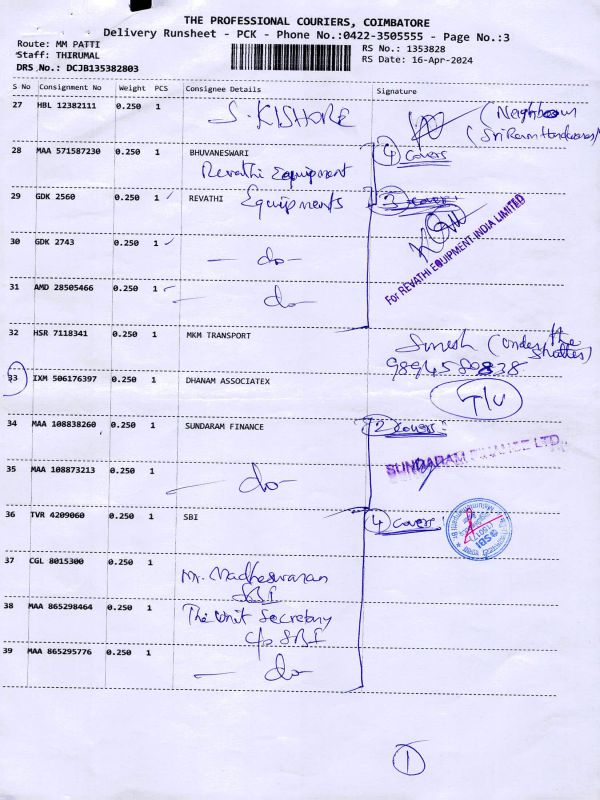 THE PROFESSIONAL COURIERS, COIMBATORE
Delivery Runsheet - PCK - Phone No.:0422-3505555 - Page No.:3
Route: MM PATTI
Staff: THIRUMAL
DRS No.: DCJB135382803
RS No.: 1353828
RS Date: 16-Apr-2024
S No Consignment No Weight PCS Consignee Details Signature
27 HBL 12382111 0.250 1 S. KISHORE (Neighbour
(Sri Ram Hardwares)
28 MAA 571587230 0.250 1 BHUVANESWARI 4 Covers
Revathi Equipment
29 GDK 2560 0.250 1 REVATHI Equipments 3 Cover
For REVATHI EQUIPMENT INDIA LIMITED
30 GDK 2743 0.250 1 - do -
31 AMD 28505466 0.250 1 - do -
32 HSR 7118341 0.250 1 MKM TRANSPORT Suresh (Under the
Shutter)
9894580838
33 IXM 506176397 0.250 1 DHANAM ASSOCIATEX
34 MAA 108838260 0.250 1 SUNDARAM FINANCE 2 Covers
SUNDARAM FINANCE LTD
35 MAA 108873213 0.250 1 - do -
36 TVR 4209060 0.250 1 SBI 4 Covers
SBI
37 CGL 8015300 0.250 1
Mr. Madheswaran
SBI
38 MAA 865298464 0.250 1 The Unit Secretary
C/o SBI
39 MAA 865295776 0.250 1 - do -
1